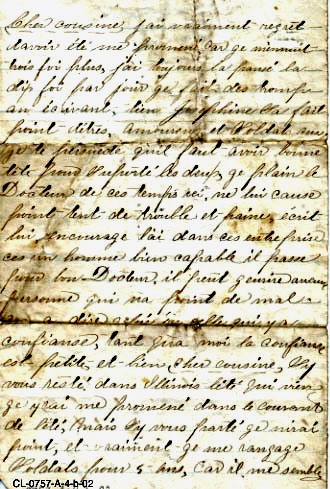 Cher cousine, j'ai vraiment regret
d'avoir été me promené car ge m'ennuit
trois foi plus, j'ai toujours la pansé la
dix foi par jour ge fait des
en écivant, bien Josephine Ne fait
point d'être amoureuse et Soldat
ge te qu'il faut avoir bonne
tête pour suporté les deux, ge plain le
Docteur de ces temps ici, ne lui cause
point tent de trouble et paine, ecrit
lui, encourage lai dans ces entreprise
ces un homme bien capable il passe
pour bon Docteur, il peut genire aucun
personne qui na point de mal
a dire a qui y a
confianse, tant qu'a moi la confianç
est petite, et bien cher cousine, sy
vous resté dans Illinois l'été qui vien
ge yrai me promené dans le courant
de l'été, mais sy vous parté ge nirai
point, et vraiment ge me rangage
Soldats pour 5 ans, car il me semble
CL-0757-A-4-b-02